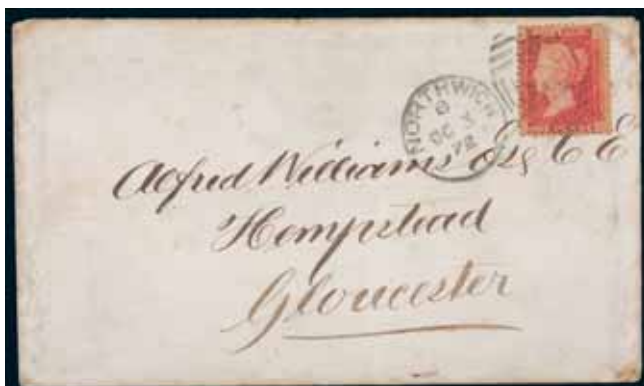 NORTHWICH
B
OC X
72
Alfred Williams Esq C E
Hempstead
Gloucester